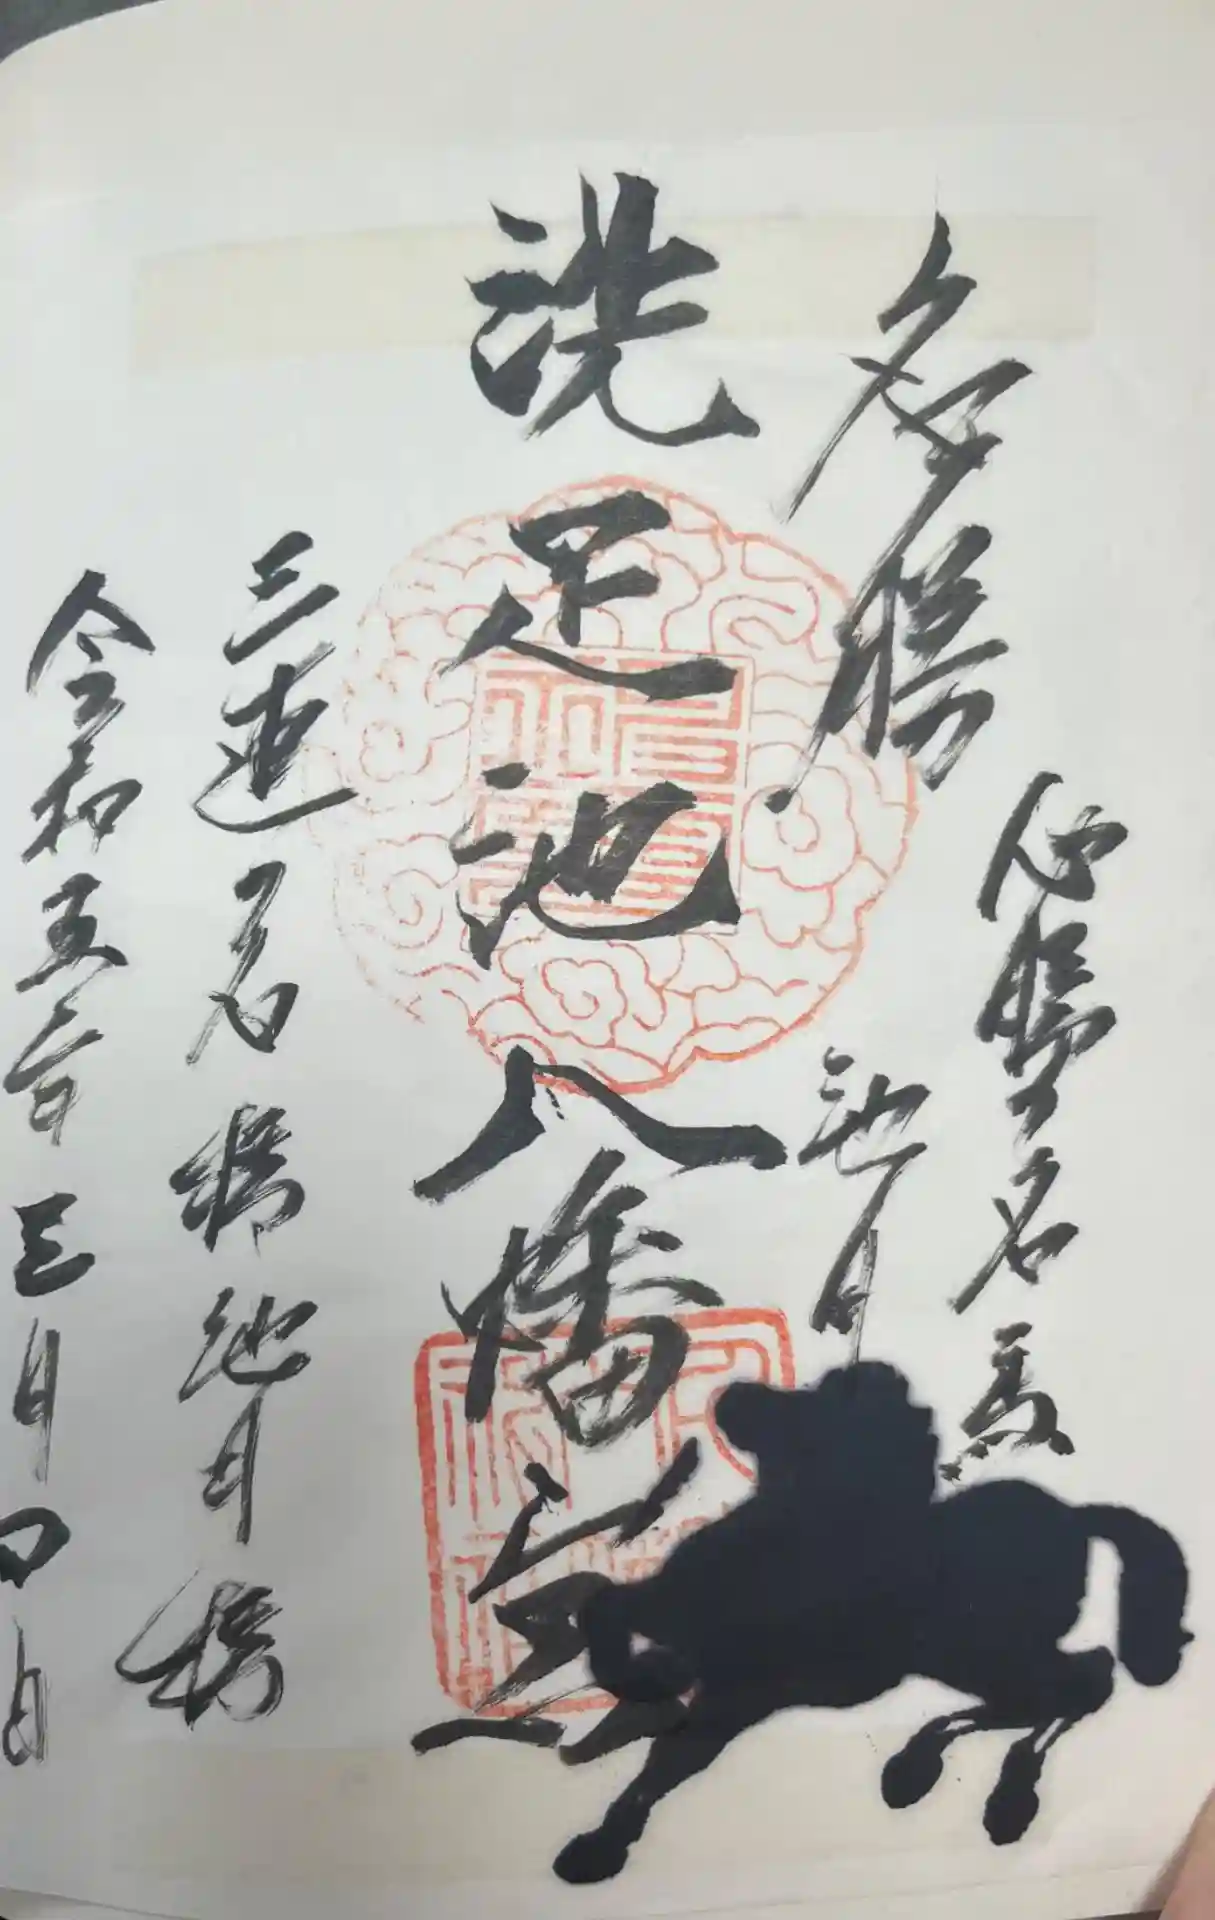 名勝
必勝名馬
池月
洗足池八幡宮
三連名橋池月橋
令和五年三月四日